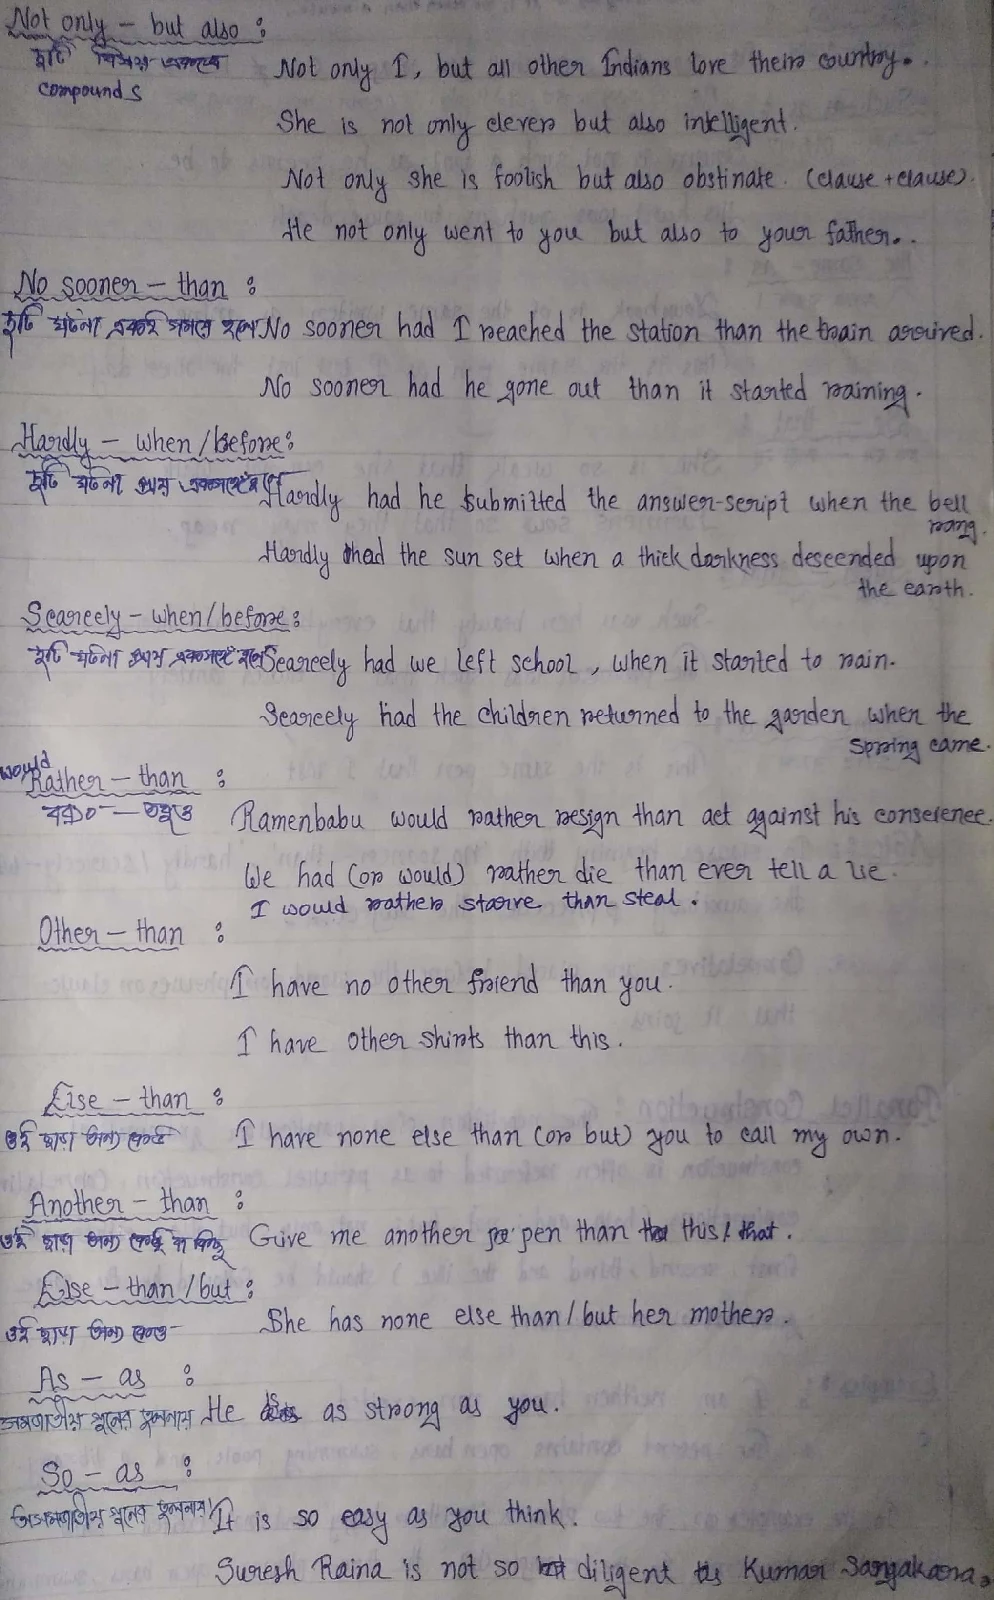 Not only – but also :
দুটি বিষয় একত্রে
compounds
Not only I, but all other Indians love their country.
She is not only clever but also intelligent.
Not only she is foolish but also obstinate. (clause + clause).
He not only went to you but also to your father.
No sooner – than :
দুটি ঘটনা একই সময়ে হলে No sooner had I reached the station than the train arrived.
No sooner had he gone out than it started raining.
Hardly – when/before:
দুটি ঘটনা প্রায়
Hardly had he submitted the answer-script when the bell
rang.
Hardly had the sun set when a thick darkness descended upon
the earth.
Scarcely – when/before:
দুটি ঘটনা প্রায় Scarcely had we left school, when it started to rain.
Scarcely had the children returned to the garden when the
spring came.
would
Rather – than :
বরং – তবুও Ramenbabu would rather resign than act against his conscience.
We had (or would) rather die than ever tell a lie.
I would rather starve than steal.
Other – than :
I have no other friend than you.
I have other shirts than this.
Else – than :
ওই ছাড়া অন্য কেউ I have none else than (or but) you to call my own.
Another – than :
ওই ছাড়া অন্য কেউ বা কিছু Give me another pen than this/that.
Else – than/but :
ওই ছাড়া অন্য কেউ She has none else than/but her mother.
As – as :
সমজাতীয় গুনের তুলনায় He is as strong as you.
So – as :
অসমজাতীয় গুনের তুলনায় It is so easy as you think.
Suresh Raina is not so diligent as Kumar Sangakara.